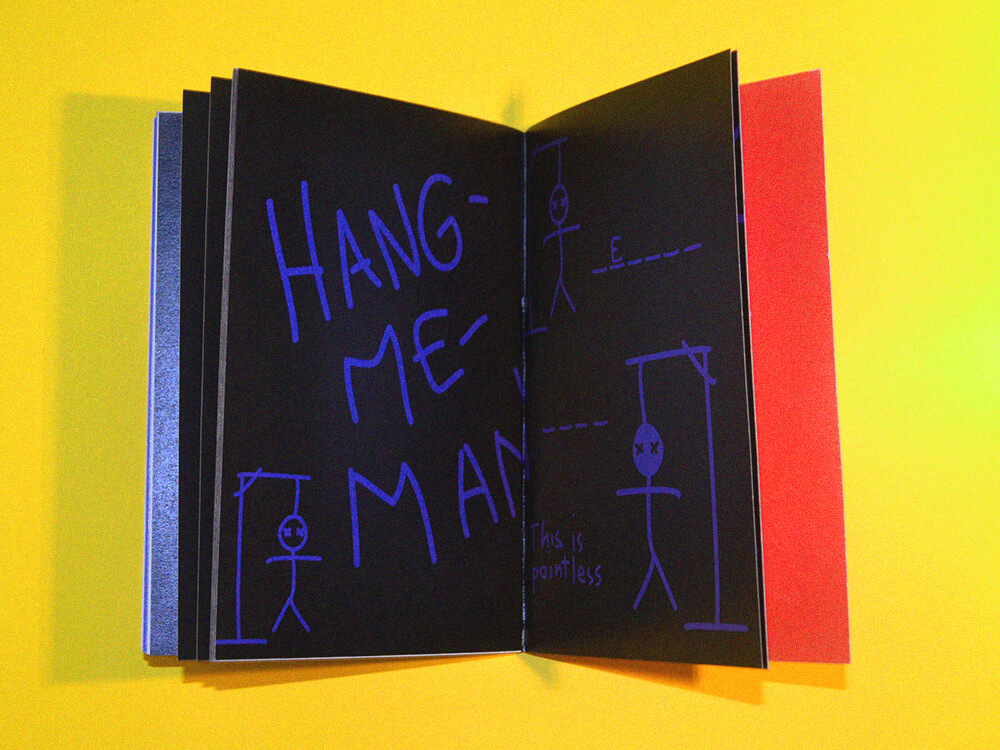 HANG-
ME-
MAN
_ E _ _ _ _ _
_ _ _ _
This is
pointless